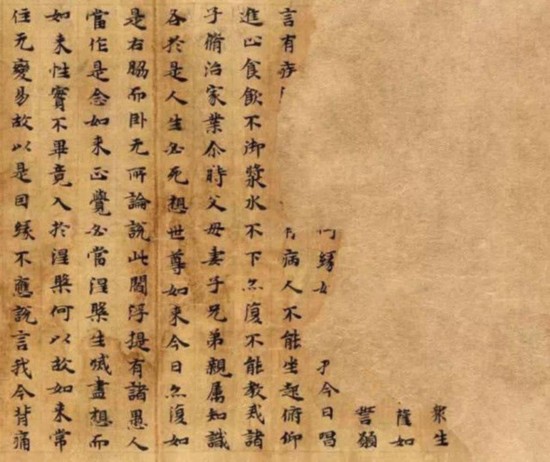 衆生
如
今日唱
言有 病人不能坐起俯仰
進止食飲不御漿水不下亦復不能教戒諸
子脩治家業尒時父母妻子兄弟親屬知識
各於是人生必死想世尊如來今日亦復如
是右脇而卧无所論說此閻浮提有諸愚人
當作是念如來正覺必當涅槃生滅盡想而
如來性實不畢竟入於涅槃何以故如來常
住无變易故以是因緣不應說言我今背痛